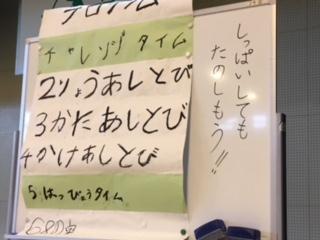 プログラム
チャレンジ タイム
2りょうあしとび
3かたあしとび
4かけあしとび
5はっぴょうタイム
しっぱいしても
たのしもう!!